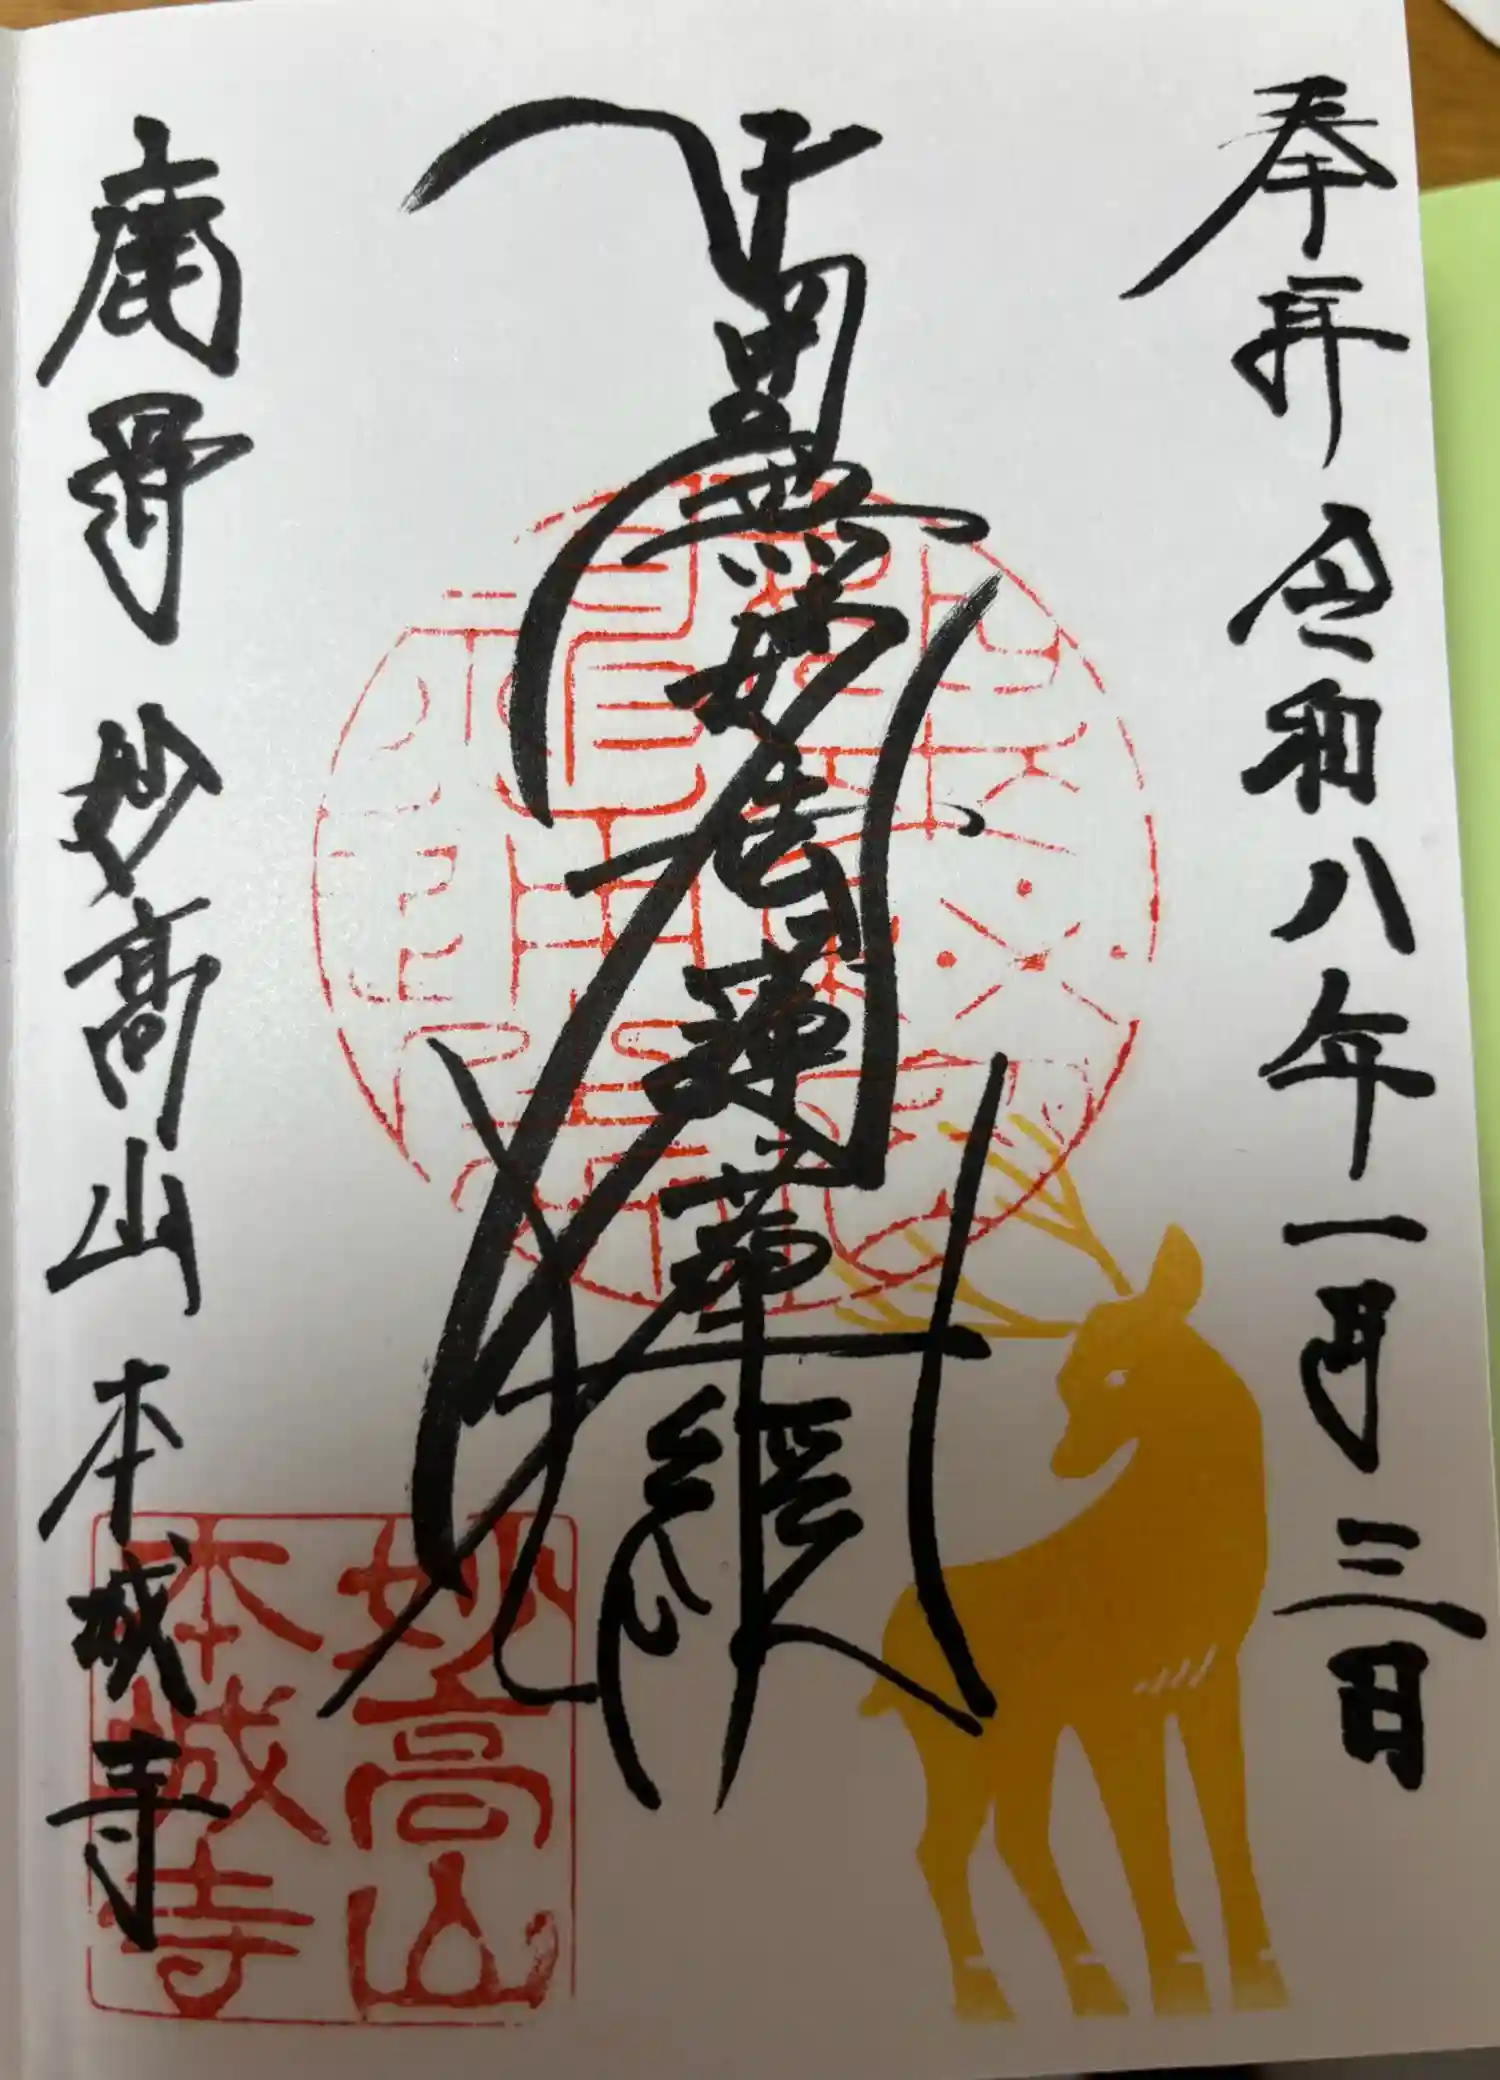 奉拝 令和八年一月三日
南無妙法蓮華経
鹿骨 妙高山 本城寺
妙高山
本城寺